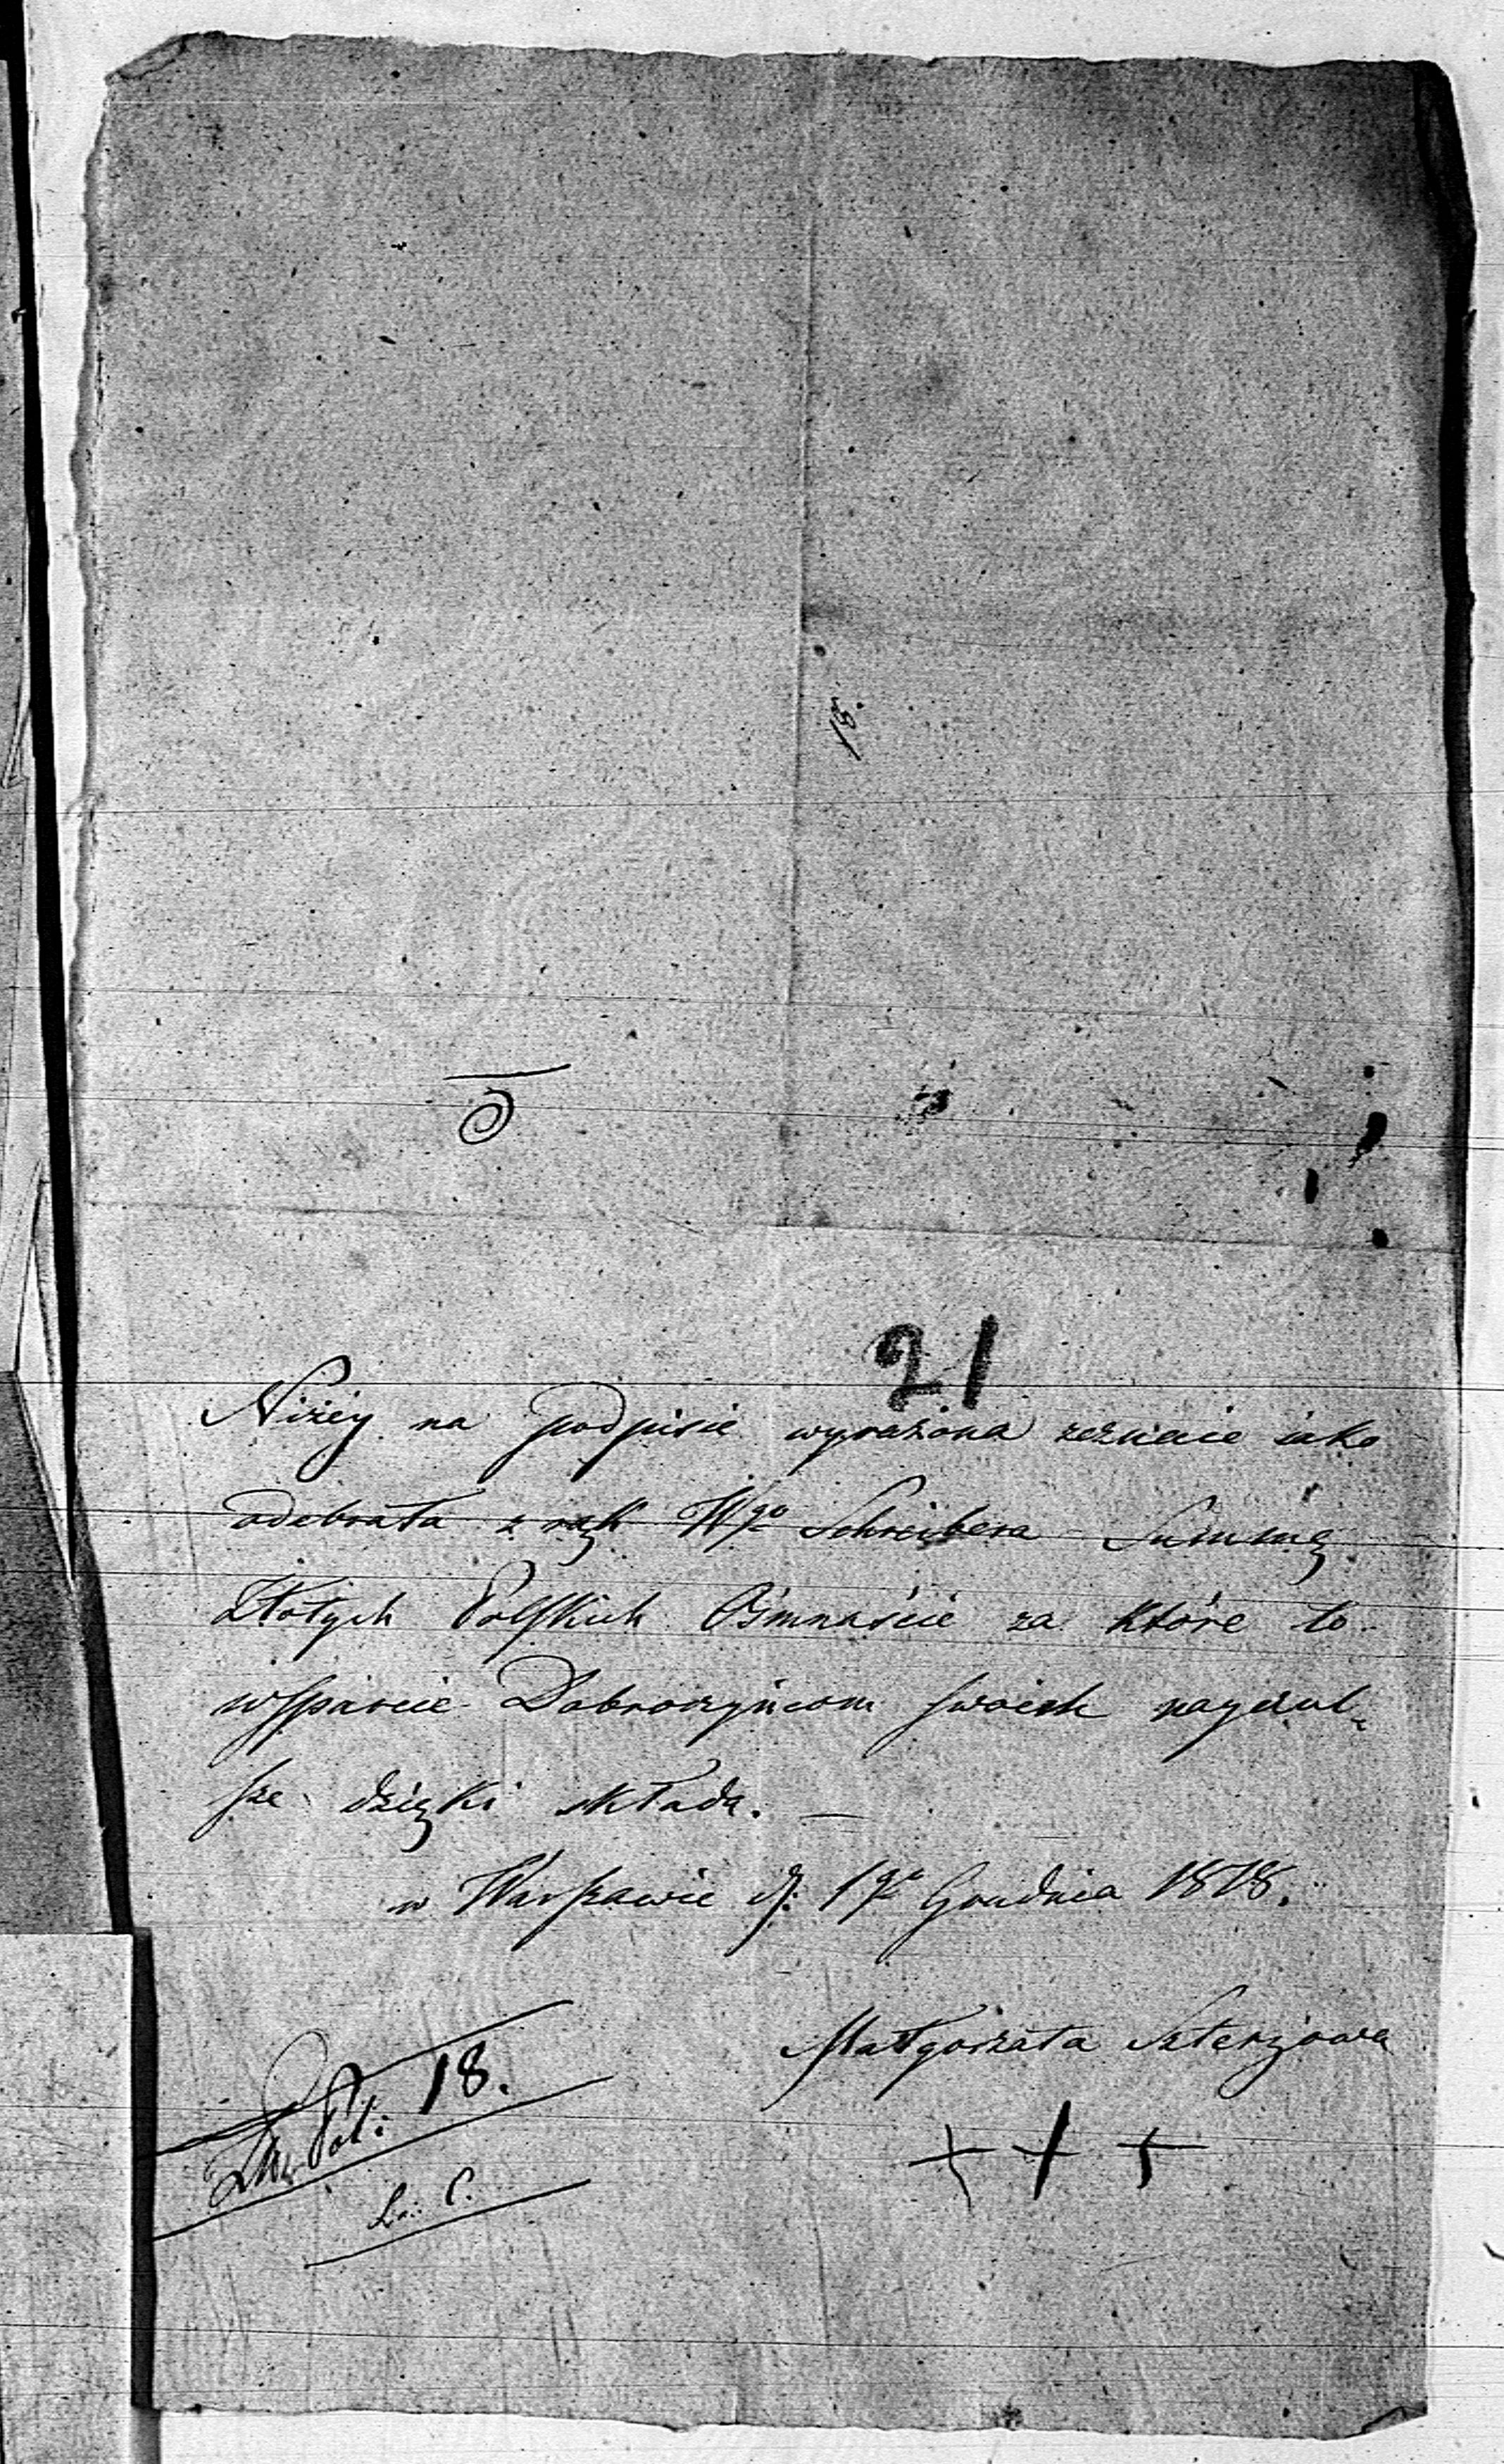 18.
21
Niżey na podpisie wyrażona zeznaie iako
odebrała z rąk Wgo Schreibera Summę
Złotych Polskich Ośmnaście za które to
wsparcie Dobroczyńcom swoich nayczul-
sze dzięki składa. —
w Warszawie d: 1go Grudnia 1818.
Małgorzata
+ + +
Pol: 18.
C.